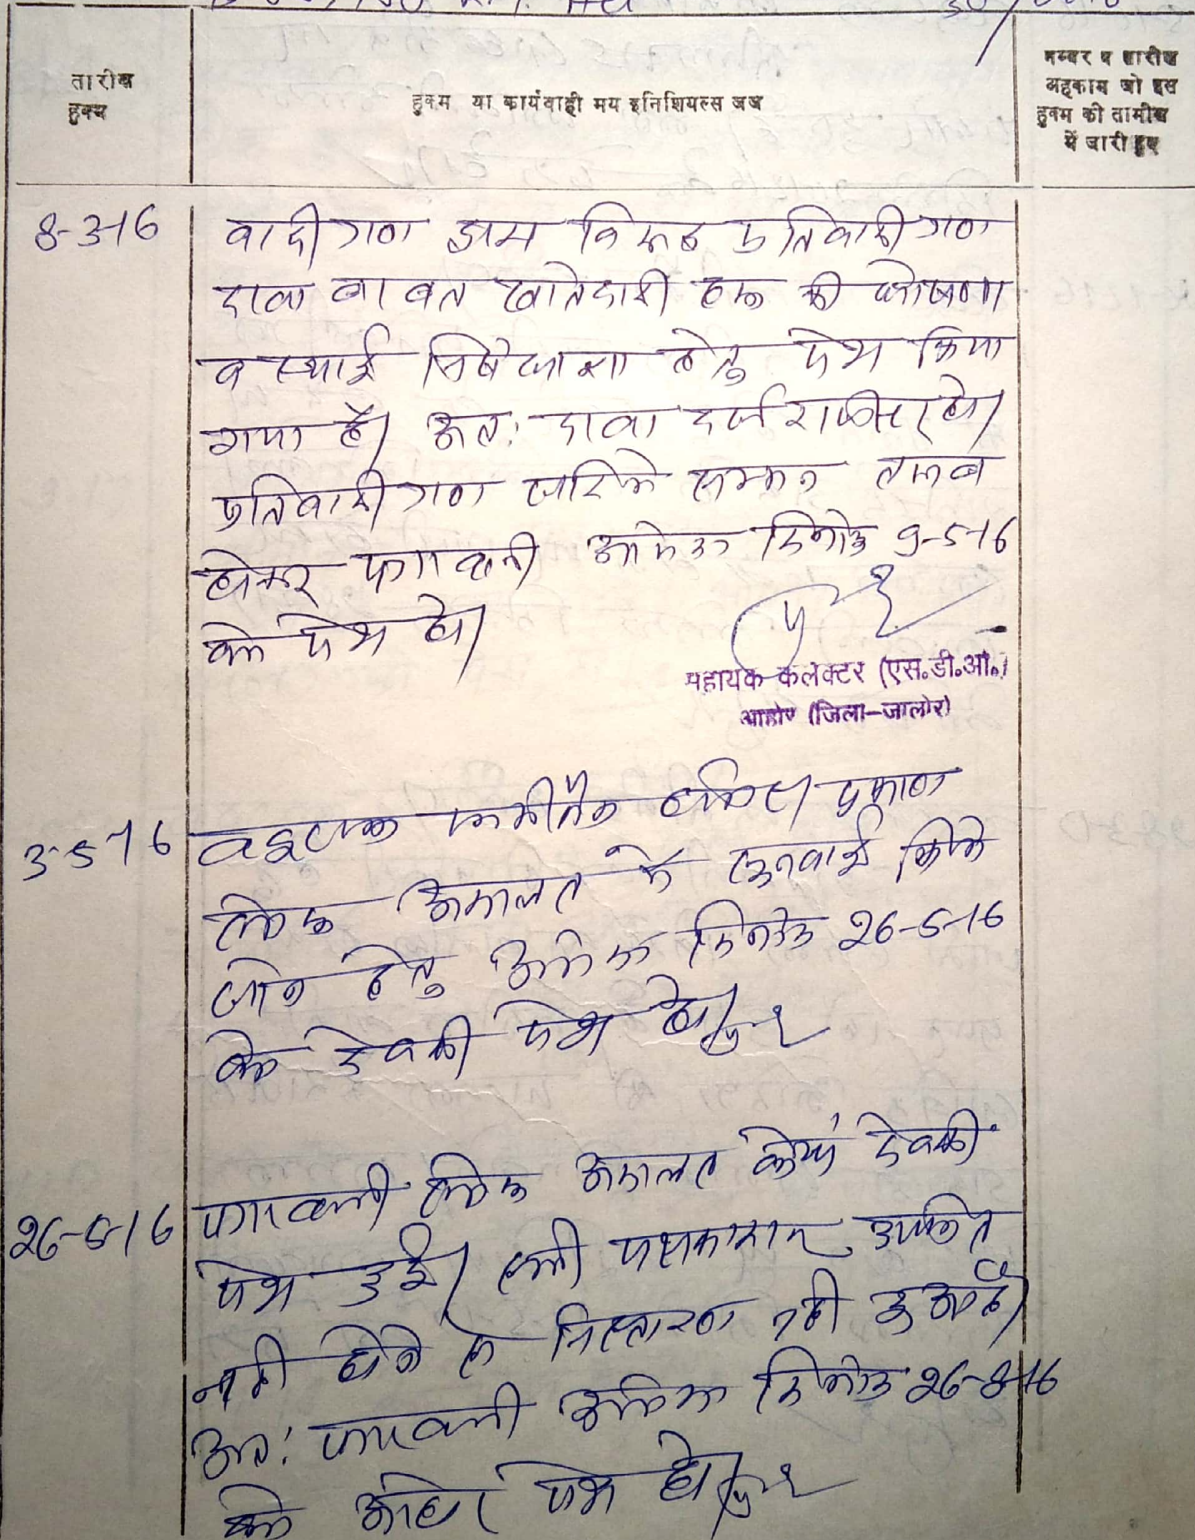 तारीख
हुक्म
हुक्म या कार्यवाही मय इनिशियल्स जज
नम्बर व तारीख
अहकाम जो इस
हुक्म की तामील
में जारी हुए
8-3-16
वादीगण द्वारा विरूद्ध प्रतिवादीगण
दावा बाबत खातेदारी हक की घोषणा
व स्थाई निषेधाज्ञा हेतु पेश किया
गया है। अतः दावा दर्ज राजिस्टर हो।
प्रतिवादीगण जरिये सम्मन तलब
होकर पत्रावली आयन्दा दिनांक 9-5-16
को पेश हो।
सहायक कलक्टर (एस.डी.ओ.)
आहोर (जिला-जालोर)
3-5-16
प्रकरण
लोक अदालत में सुनवाई किये
जाने हेतु दिनांक 26-5-16
को पेश हो।
26-5-16
पत्रावली लोक अदालत
पेश हुई। सभी पक्षकारान उपस्थित
नहीं होने से निस्तारण नही हुआ है।
अतः पत्रावली दिनांक 26-8-16
को आहोर पेश हो।